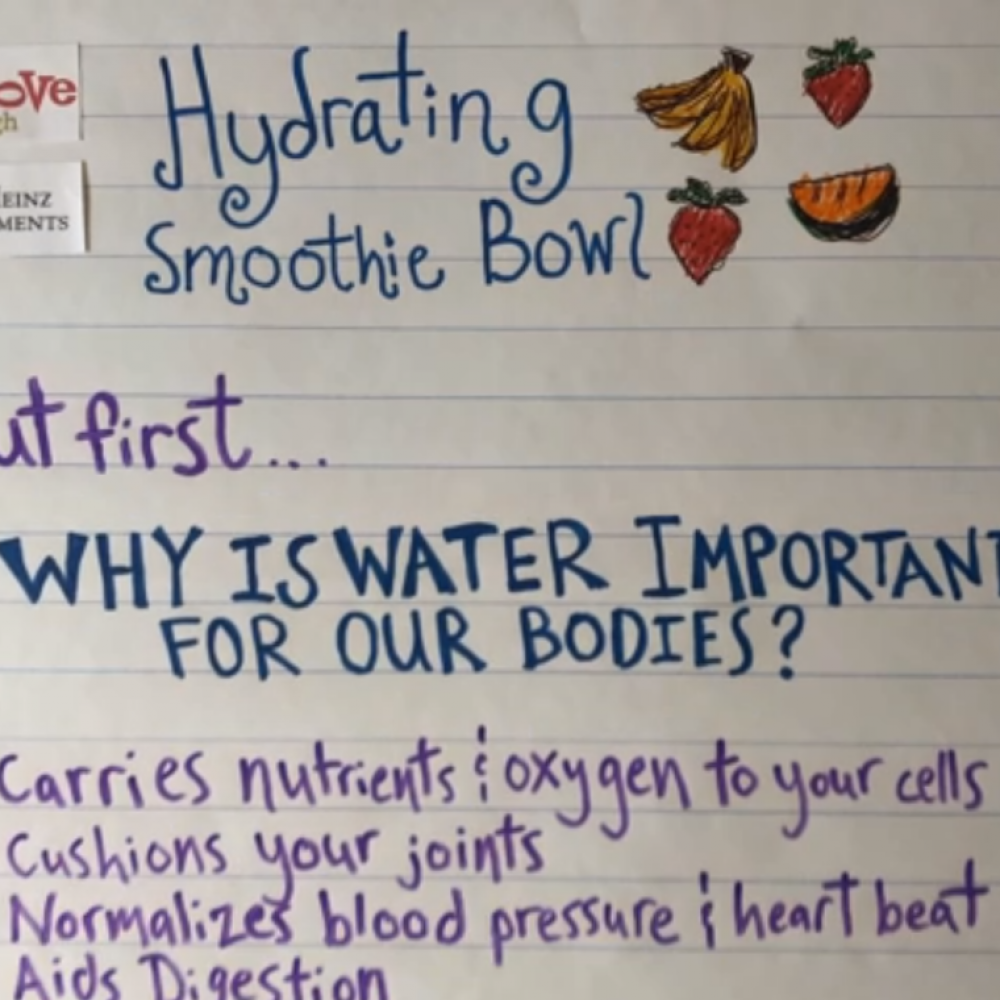 ove
gh
EINZ
MENTS
Hydrating
Smoothie Bowl
ut first...
WHY IS WATER IMPORTANT
FOR OUR BODIES?
Carries nutrients & oxygen to your cells
Cushions your joints
Normalizes blood pressure & heart beat
Aids Digestion